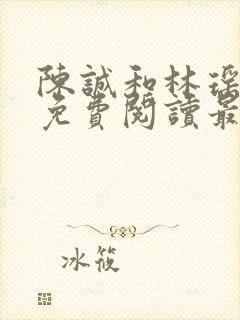 陳誠和林瑤
免費閱讀最
冰筱